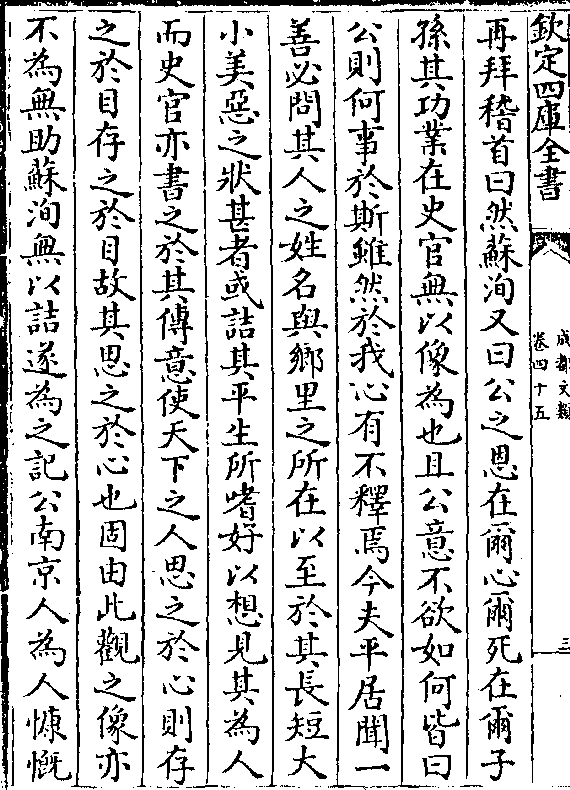 欽定四庫全書
成都文類
卷四十五
三
再拜稽首曰然蘇洵又曰公之恩在爾心爾死在爾子
孫其功業在史官無以像為也且公意不欲如何皆曰
公則何事於斯雖然於我心有不釋焉今夫平居聞一
善必問其人之姓名與鄉里之所在以至於其長短大
小美惡之狀甚者或詰其平生所嗜好以想見其為人
而史官亦書之於其傳意使天下之人思之於心則存
之於目存之於目故其思之於心也固由此觀之像亦
不為無助蘇洵無以詰遂為之記公南京人為人慷慨